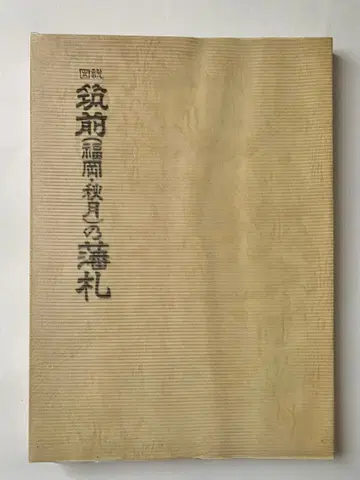 図説
筑前(福岡・秋月)の藩札